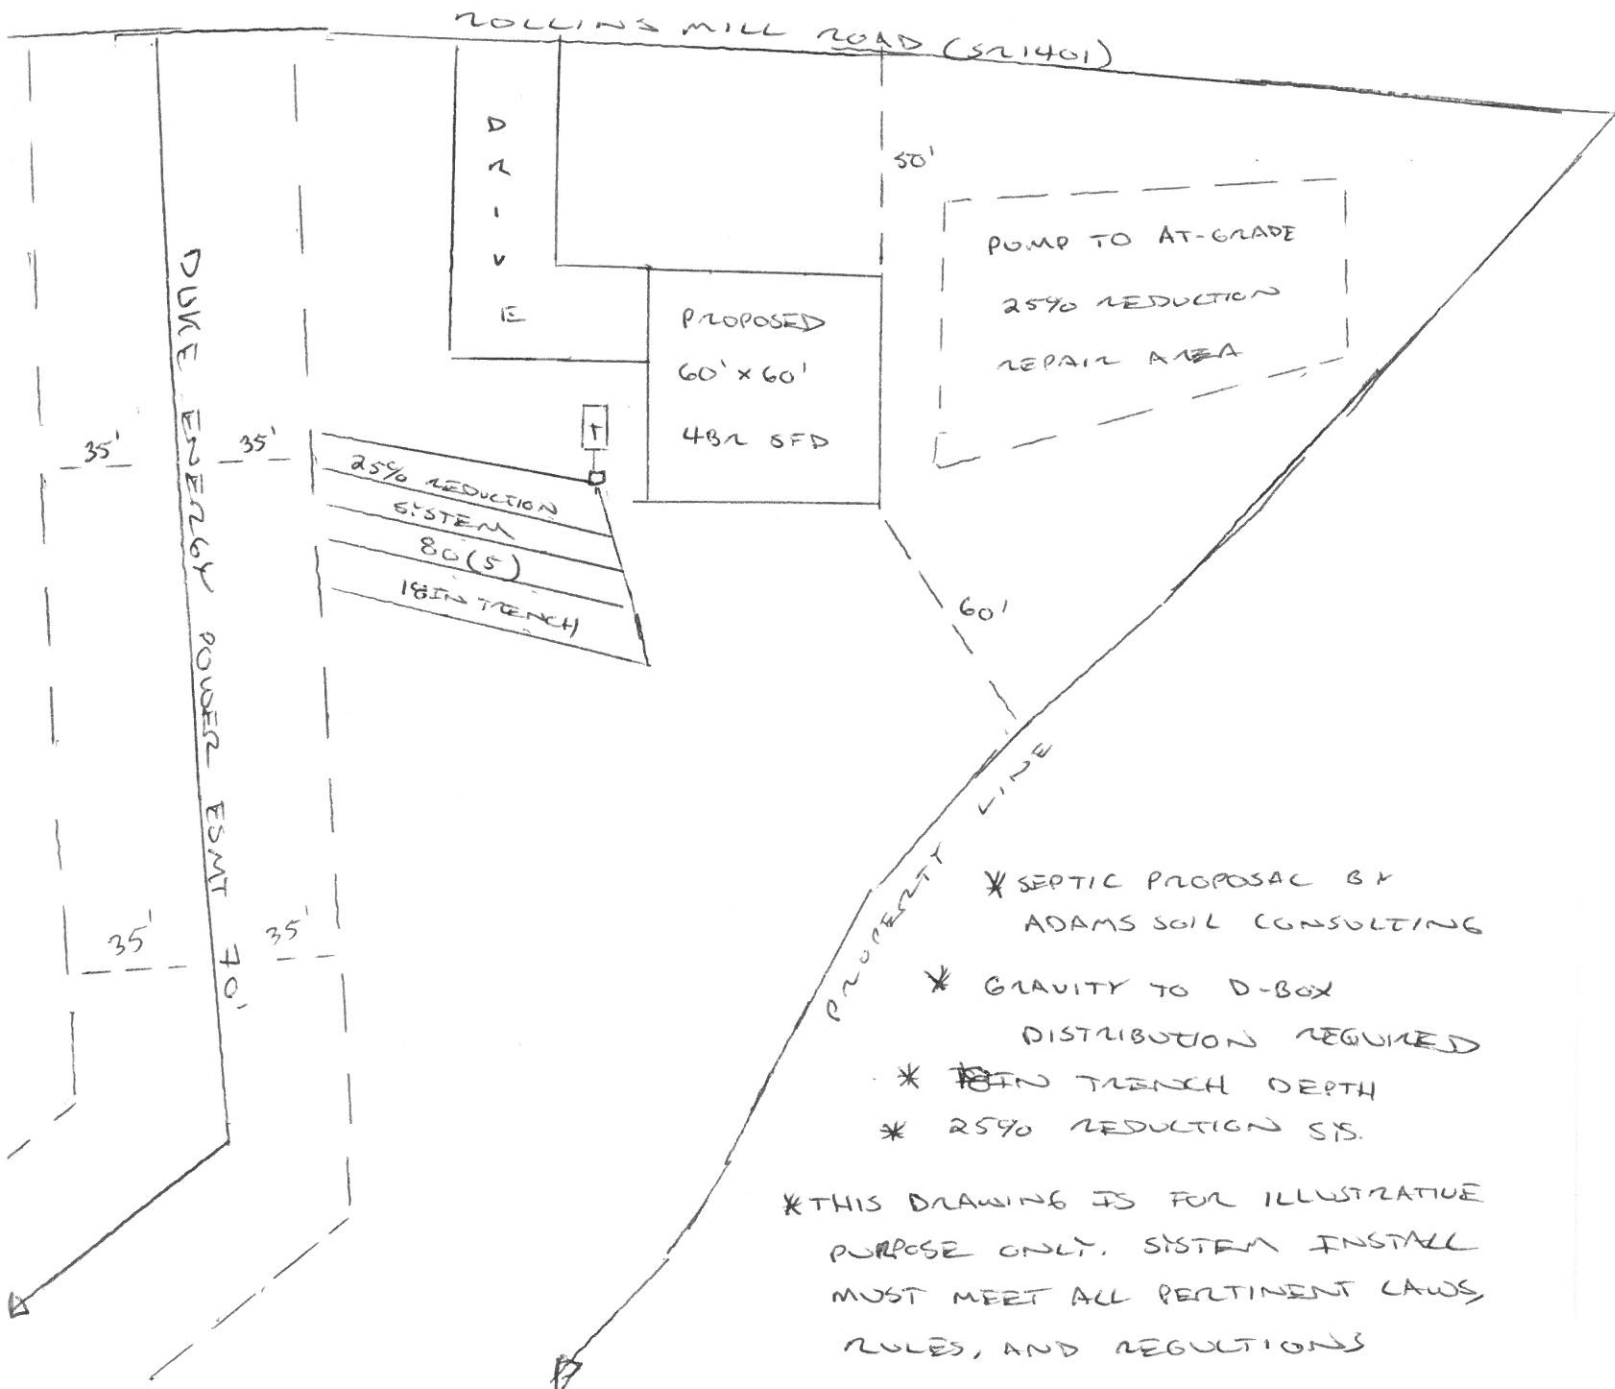 ROLLINS MILL ROAD (SR1401)
DRIVE
50'
PUMP TO AT-GRADE
25% REDUCTION
REPAIR AREA
PROPOSED
60' x 60'
4BR SFD
T
DUKE ENERGY POWER ESMT 70'
35'
35'
25% REDUCTION
SYSTEM
80(5)
18IN TRENCH
60'
PROPERTY LINE
35'
35'
* SEPTIC PROPOSAL BY
ADAMS SOIL CONSULTING
* GRAVITY TO D-BOX
DISTRIBUTION REQUIRED
* 18IN TRENCH DEPTH
* 25% REDUCTION SYS.
* THIS DRAWING IS FOR ILLUSTRATIVE
PURPOSE ONLY. SYSTEM INSTALL
MUST MEET ALL PERTINENT LAWS,
RULES, AND REGULTIONS